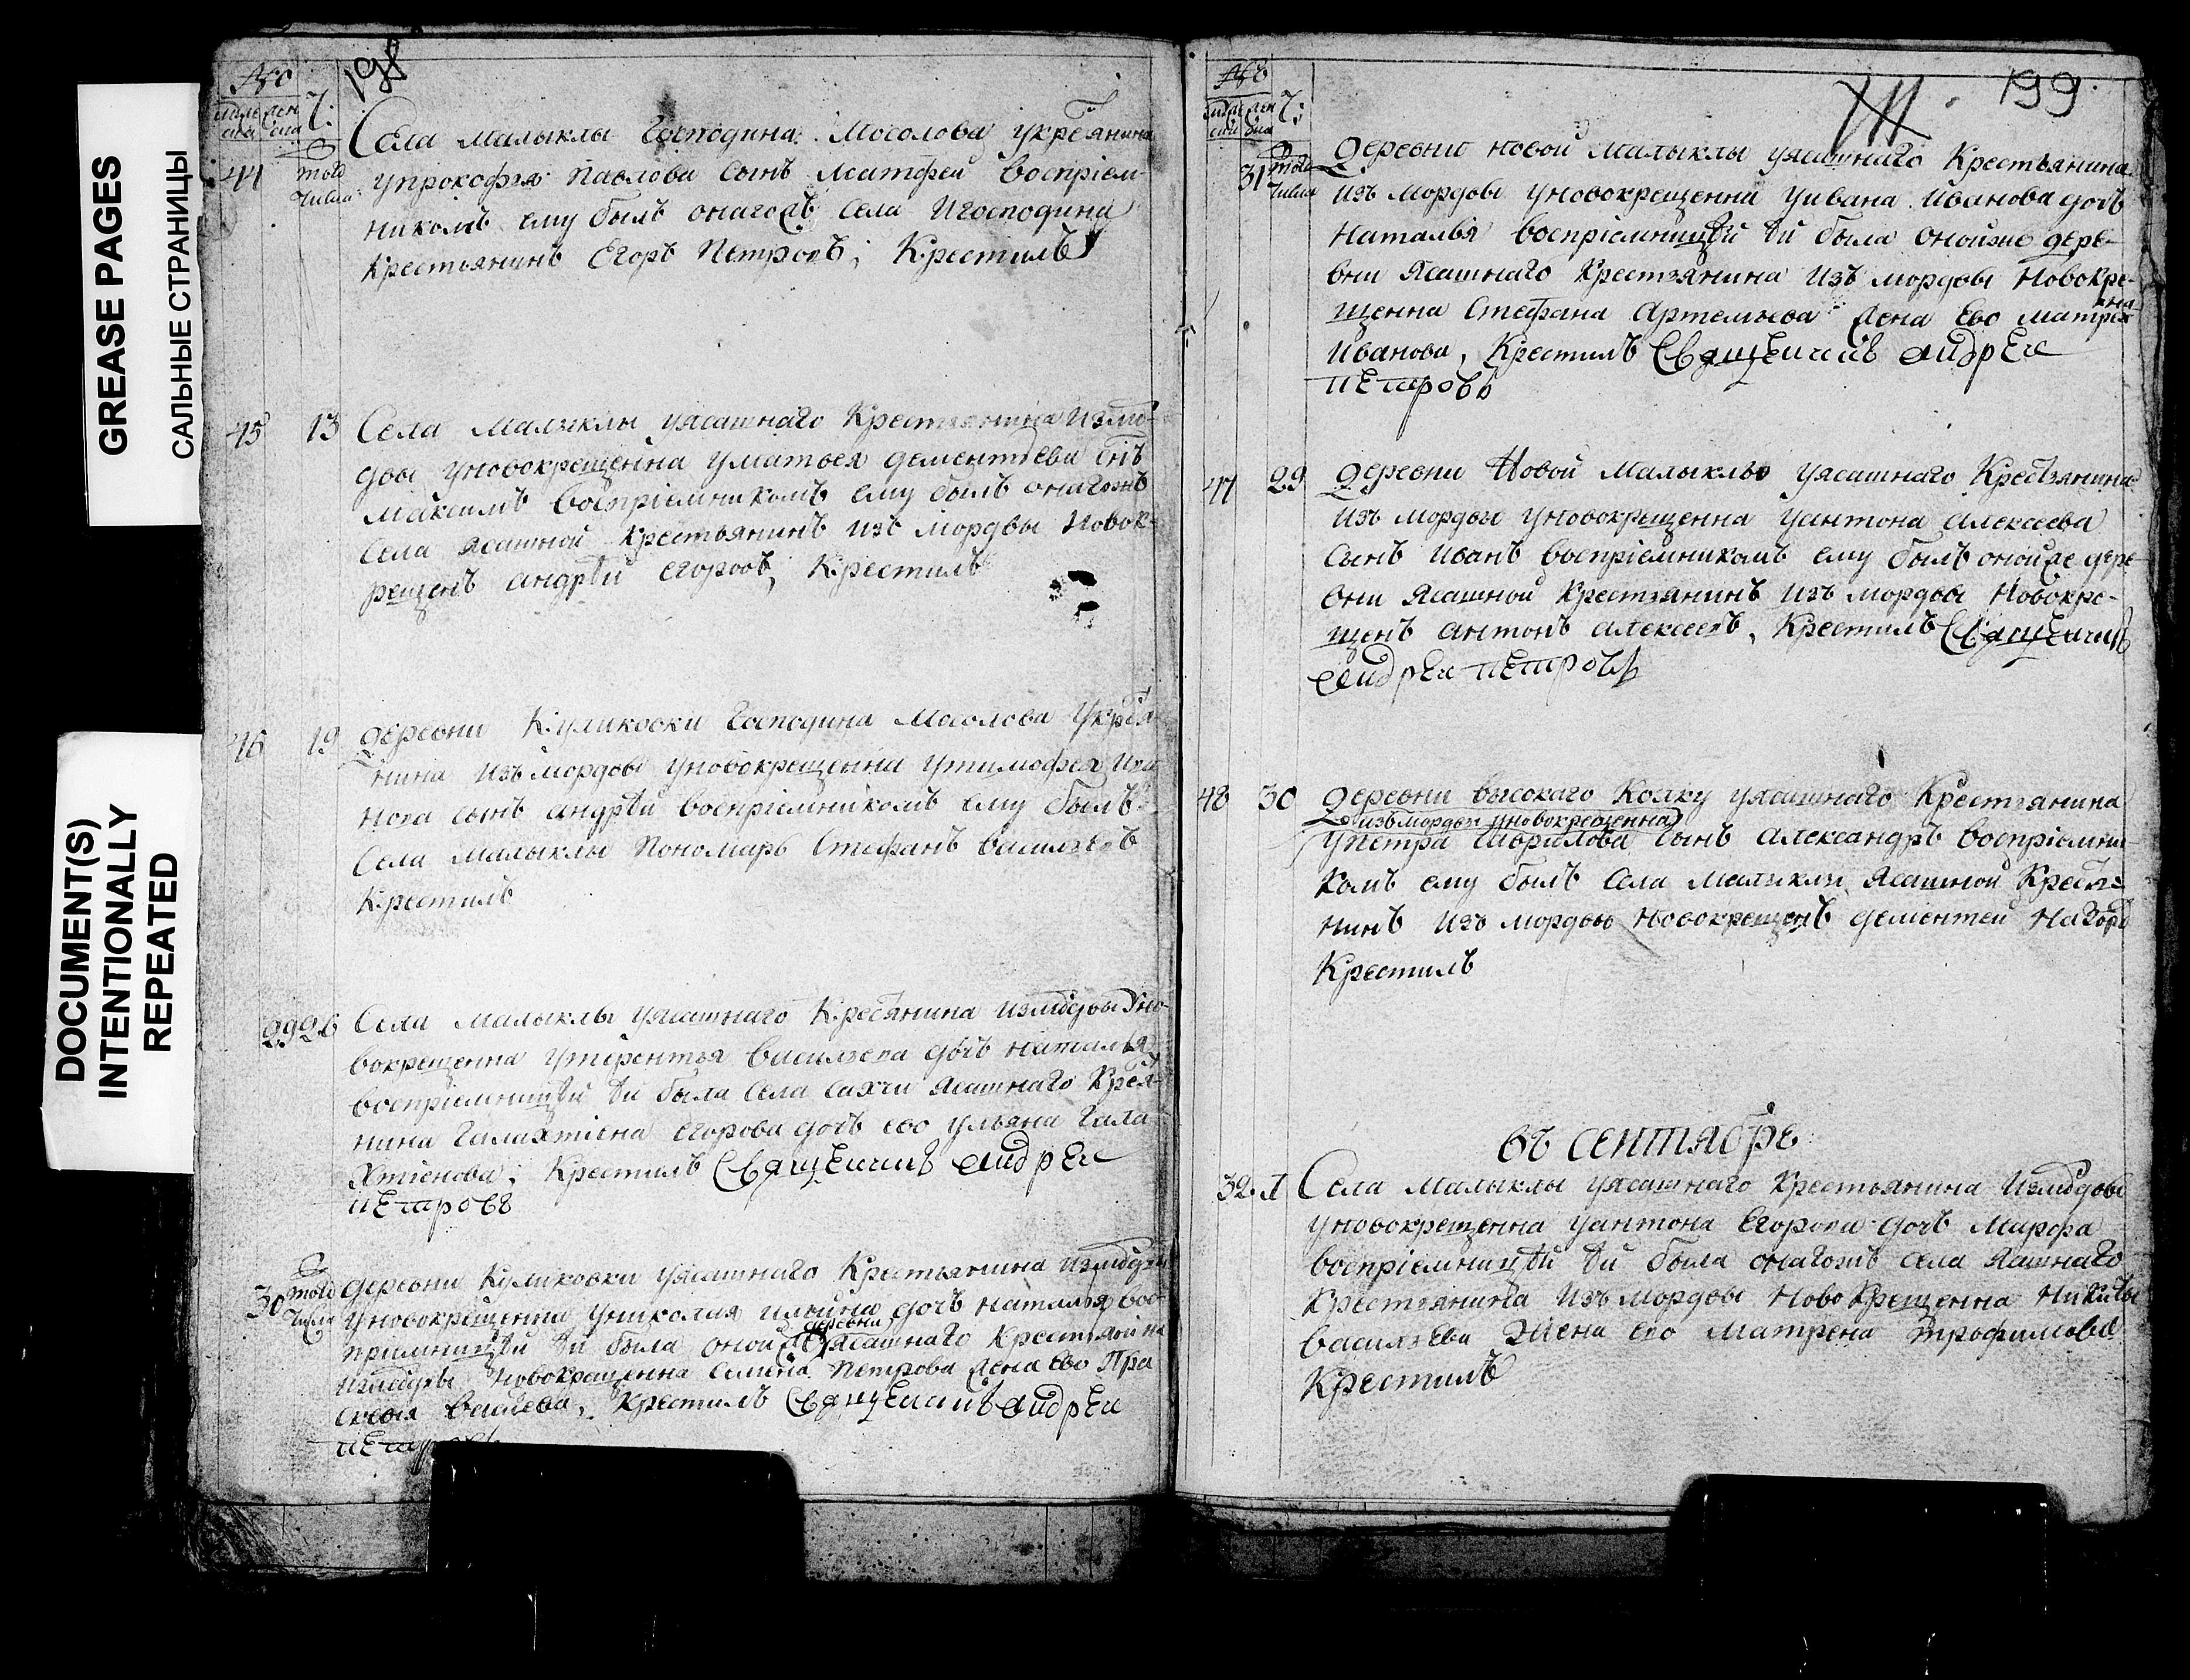 GREASE PAGES
САЛЬНЫЕ СТРАНИЦЫ
DOCUMENT(S)
INTENTIONALLY
REPEATED
198
44 того числа
Села малыклы Господина Мосолова укрестянина
упрокофея павлова сынъ матфеи воспрiем-
никомъ ему былъ онагожъ села Игосподина
крестьянинъ Егоръ Петровъ; Крестилъ
45 13 Села малыклы уясашнаго крестьянина Измор-
двы уновокрещенна уматвея дементiева снъ
максимъ воспрiемникомъ ему былъ онагожъ
села ясашной крестьянинъ изъ мордвы Новок-
рещенъ андрѣи егоровъ, Крестилъ
46 19 деревни Куликовки Господина Мосолова Укрестя-
нина изъ мордвы уновокрещенна утимофея
сынъ андрѣи воспрiемникомъ ему былъ
Села малыклы Пономарь Стефанъ васильевъ
Крестилъ
29 26 Села малыклы уясашнаго Крестянина измордвы уно-
вокрещенна утерентья васильева дочь наталья
воспрiемницѣй ѣй была села сахчи ясашнаго Крестя-
нина галахтiена егорова дочь ево ульяна гала
хтiенова; Крестилъ Священникъ андреи
петровъ
30 того числа
деревни Куликовки уясашнаго Крестьянина измордвы
уновокрещенна униколая ильина дочь наталья вос-
приемницѣй ѣй была оной деревни ясашнаго крестьянина
измордвы новокрещенна Петрова жена ево Пра
сковья, Крестилъ Священникъ андреи
петровъ
199
31 того числа
Деревни новой малыклы уясашнаго Крестьянина
изъ мордвы уновокрещенна уивана иванова дочь
Наталья воспрiемницѣй ѣй была онойже дере-
вни ясашнаго Крестьянина изъ мордвы новокре-
щенна Стефана Артемьева жена ево матрена
иванова, Крестилъ Священникъ андреи
петровъ
47 29 Деревни Новой малыклы уясашнаго Крестьянина
изъ мордвы уновокрещенна уантона алексеева
сынъ иванъ воспрiемникомъ ему былъ онойже дере
вни ясашной Крестьянинъ изъ мордвы Новокре-
щенъ антонъ алексеевъ, Крестилъ Священникъ
андреи петровъ
48 30 Деревни высокаго Колку уясашнаго Крестьянина
изъ мордвы уновокрещенна
упетра гаврилова сынъ Александръ воспрiемни-
комъ ему былъ Села малыклы ясашной Крестья-
нинъ изъ мордвы Новокрещенъ дементей
Крестилъ
въ сентябре
32 1 Села малыклы уясашнаго крестьянина Измордвы
уновокрещенна уантона Егорова дочь Марфа
воспрiемницѣй ѣй была онагожъ села ясашнаго
крестьянина изъ мордвы новокрещенна Никиты
васильева жена ево матрена трофимова
Крестилъ